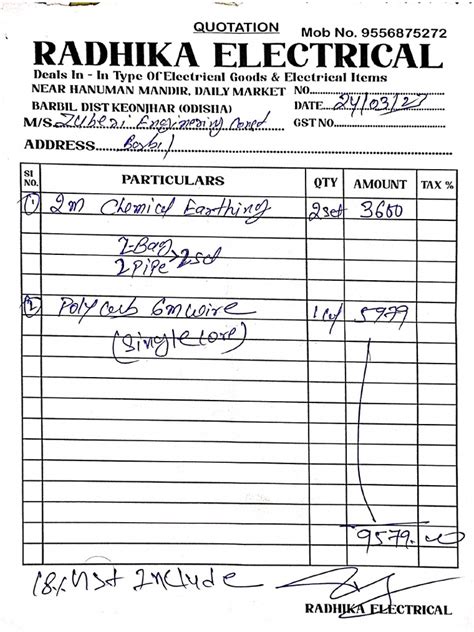 QUOTATION
Mob No. 9556875272
RADHIKA ELECTRICAL
Deals In - In Type Of Electrical Goods & Electrical Items
NEAR HANUMAN MANDIR, DAILY MARKET NO.
BARBIL DIST KEONJHAR (ODISHA) DATE 24/03/23
M/S. Zuberi Engineering
GST NO.
ADDRESS Barbil
SI NO. PARTICULARS QTY AMOUNT TAX %
1 2m Chemical Earthing 2set 3600
2-Bag
2 Pipe 2set
2 Polycab 6m wire 5979
(Single core)
9579.00
18% Gst Include
RADHIKA ELECTRICAL